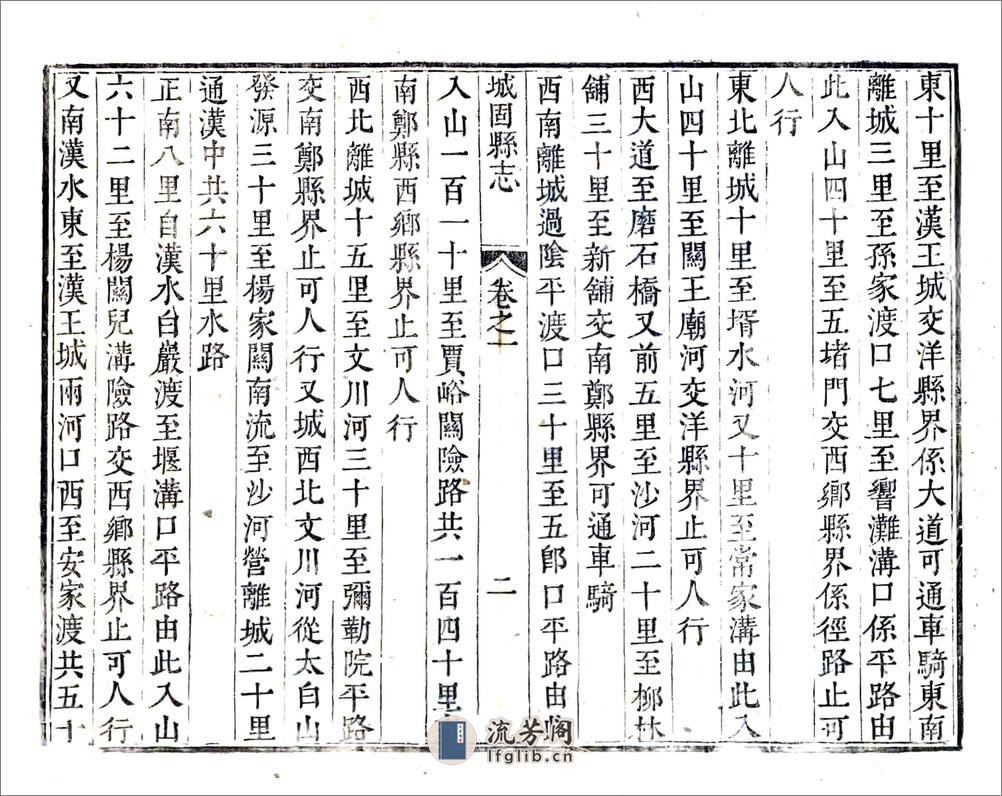 東十里至漢王城交洋縣界係大道可通車騎東南
離城三里至孫家渡口七里至響灘溝口係平路由
此入山四十里至五堵門交西鄉縣界係徑路止可
人行
東北離城十里至壻水河又十里至常家溝由此入
山四十里至關王廟河交洋縣界止可人行
西大道至磨石橋又前五里至沙河二十里至柳林
舖三十里至新舖交南鄭縣界可通車騎
西南離城過陰平渡口三十里至五郎口平路由此
城固縣志
卷之一
二
入山一百一十里至賈峪關險路共一百四十里
南鄭縣西鄉縣界止可人行
西北離城十五里至文川河三十里至彌勒院平路
交南鄭縣界止可人行又城西北文川河從太白山
發源三十里至楊家關南流至沙河營離城二十里
通漢中共六十里水路
正南八里自漢水白巖渡至堰溝口平路由此入山
六十二里至楊關兒溝險路交西鄉縣界止可人行
又南漢水東至漢王城兩河口西至安家渡共五十
流芳阁
lfglib.cn